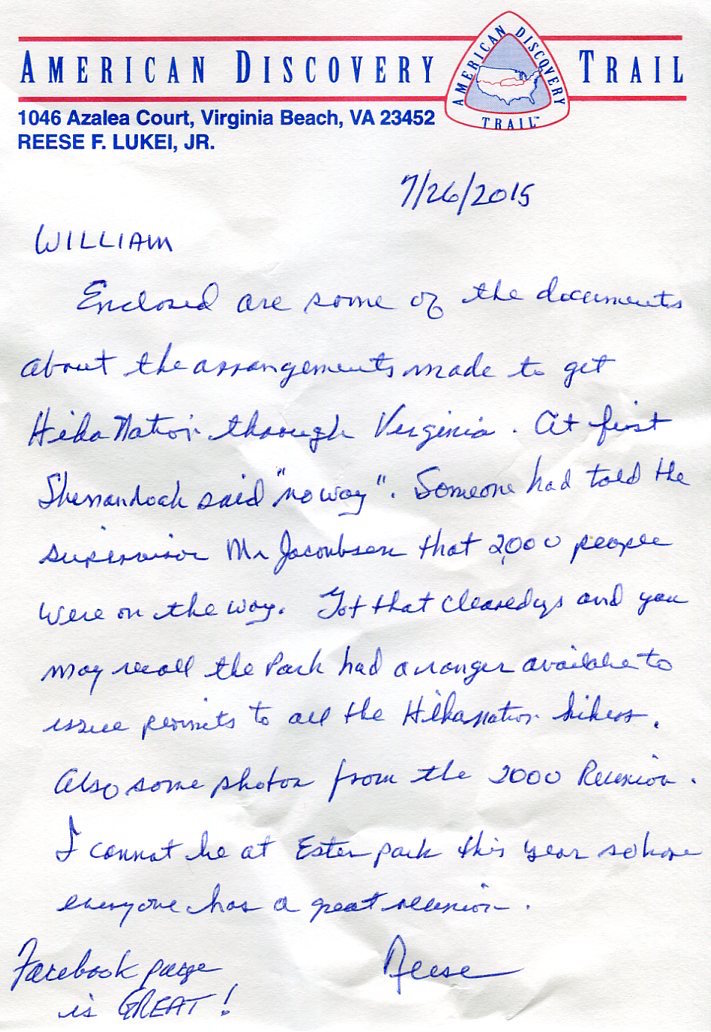 AMERICAN DISCOVERY TRAIL
AMERICAN DISCOVERY TRAIL™
1046 Azalea Court, Virginia Beach, VA 23452
REESE F. LUKEI, JR.
7/26/2015
WILLIAM
Enclosed are some of the documents
about the arrangements made to get
HikaNation through Virginia. At first
Shenandoah said "no way". Someone had told the
supervisor Mr Jacoubsen that 2,000 people
were on the way. Got that cleared up and you
may recall the Park had a ranger available to
issue permits to all the Hikanation hikers.
Also some photos from the 2000 Reunion.
I cannot be at Estes park this year so hope
everyone has a great reunion.
Reese
Facebook page
is GREAT!